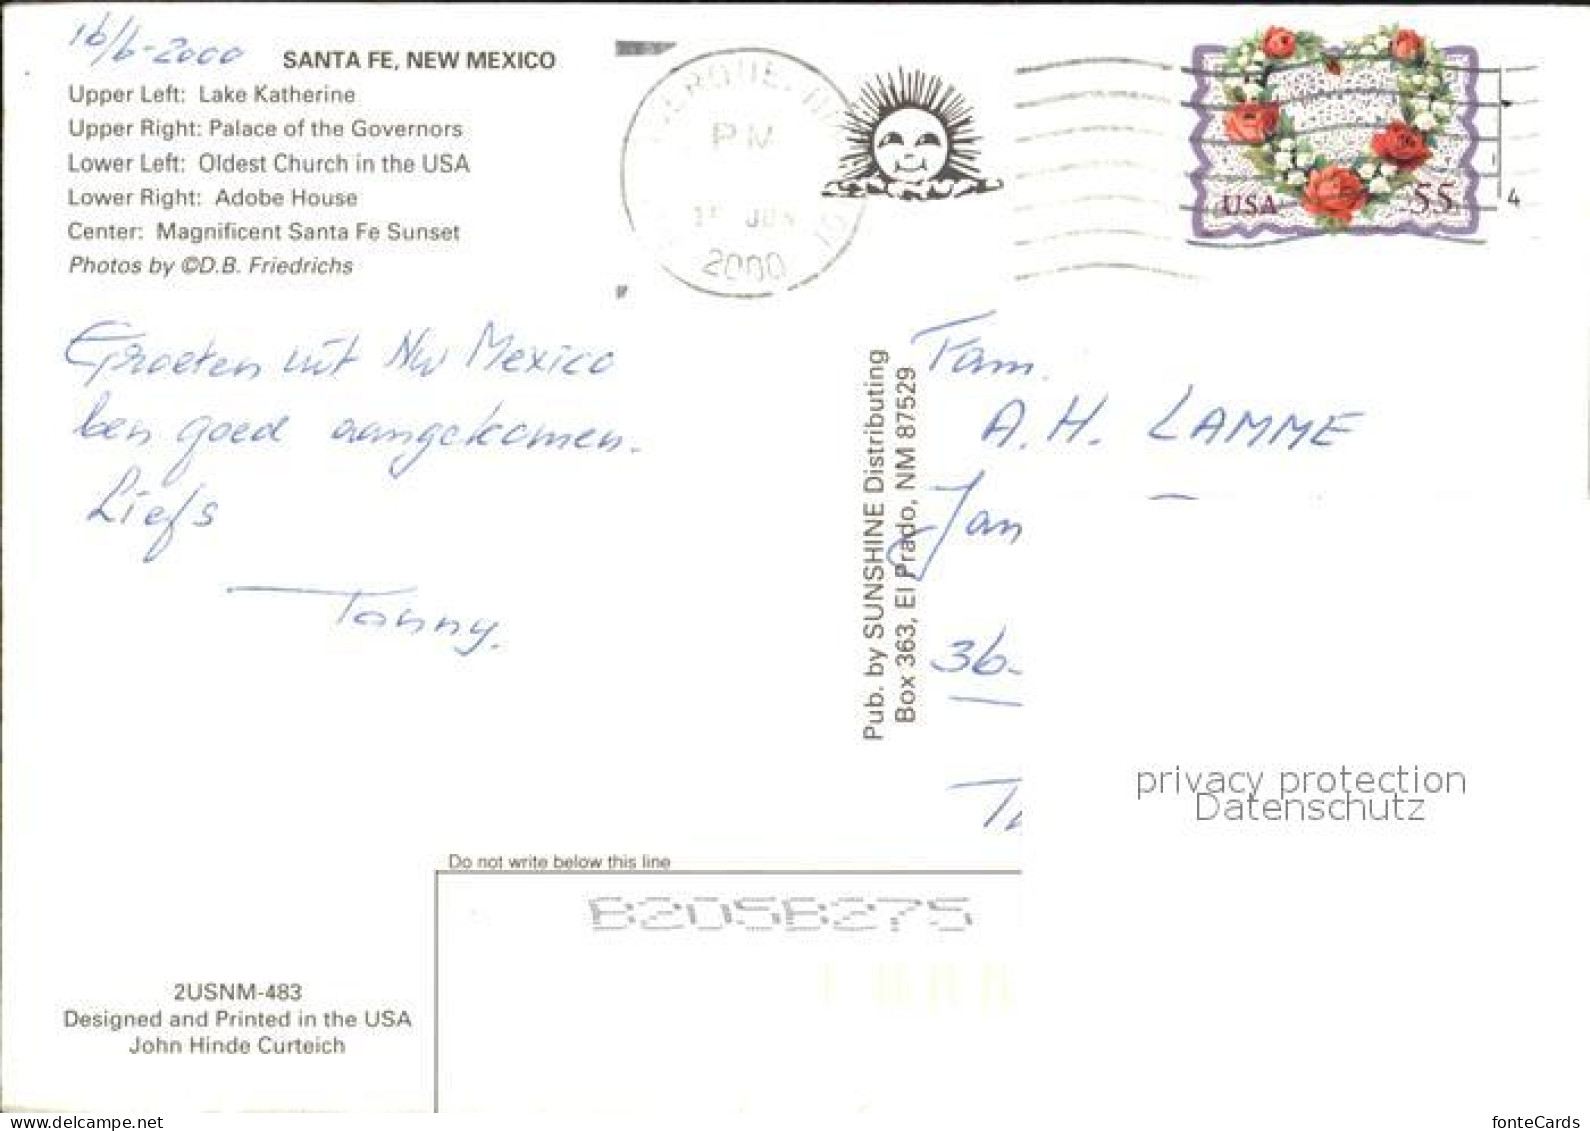 16/6-2000 SANTA FE, NEW MEXICO
Upper Left: Lake Katherine
Upper Right: Palace of the Governors
Lower Left: Oldest Church in the USA
Lower Right: Adobe House
Center: Magnificent Santa Fe Sunset
Photos by ©D.B. Friedrichs
PM
JUN
2000
USA 55
4
Groeten uit Nw Mexico
ben goed aangekomen.
Liefs
Tonny.
Pub. by SUNSHINE Distributing
Box 363, El Prado, NM 87529
Fam.
A.H. LAMME
Jan
36-
privacy protection
Datenschutz
Do not write below this line
B205B275
2USNM-483
Designed and Printed in the USA
John Hinde Curteich
www.delcampe.net
fonteCards